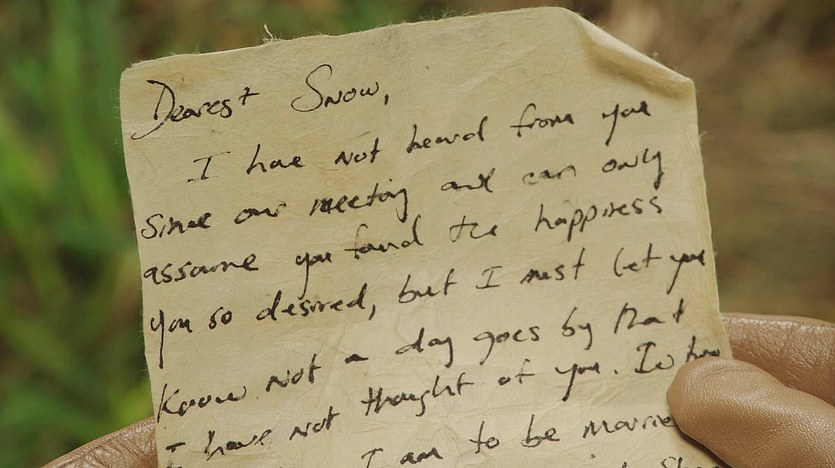 Dearest Snow,
I have not heard from you
since our meeting and can only
assume you found the happiness
you so desired, but I must let you
know not a day goes by that
I have not thought of you. In two
I am to be married